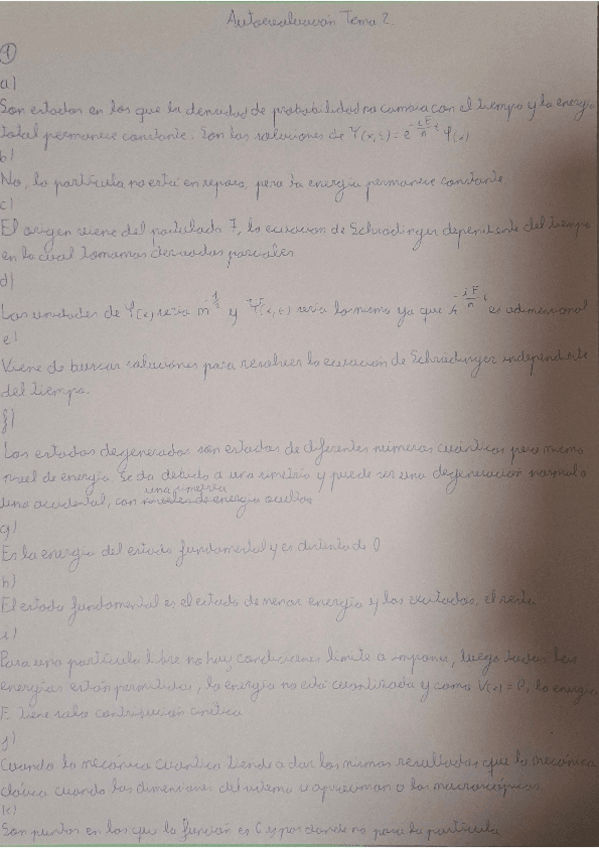 Autoevaluación Tema 2.
①
a)
Son estados en los que la densidad de probabilidad no cambia con el tiempo y la energía
total permanece constante. Son las soluciones de Ψ(x,t) = e^{-iE/ħ t} φ(x)
b)
No, la partícula no está en reposo, pero la energía permanece constante
c)
El origen viene del postulado 7, la ecuación de Schrödinger dependiente del tiempo
en la cual tomamos derivadas parciales
d)
Las unidades de φ(x) sería m^{-1/2} y Ψ(x,t) sería lo mismo ya que e^{-iE/ħ t} es adimensional
e)
Viene de buscar soluciones para resolver la ecuación de Schrödinger independiente
del tiempo.
f)
Los estados degenerados son estados de diferentes números cuánticos pero mismo
nivel de energía. Se da debido a una simetría y puede ser una degeneración normal o
una simetría
una accidental, con niveles de energía ocultos
g)
Es la energía del estado fundamental y es distinta de 0
h)
El estado fundamental es el estado de menor energía y los excitados, el resto.
i)
Para una partícula libre no hay condiciones límite a imponer, luego todas las
energías están permitidas, la energía no está cuantizada y como V(x) = 0, la energía
E tiene solo contribución cinética
j)
Cuando la mecánica cuántica tiende a dar los mismos resultados que la mecánica
clásica cuando las dimensiones del sistema se aproximan a los macroscópicos.
k)
Son puntos en los que la función es 0 y por donde no pasa la partícula